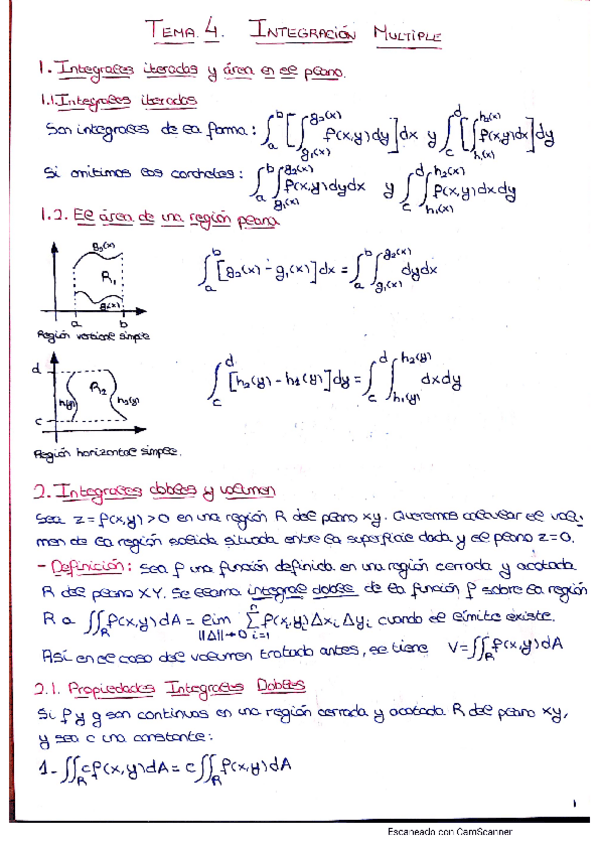 TEMA 4. INTEGRACIÓN MULTIPLE
1. Integrales iteradas y área en el plano.
1.1. Integrales iteradas
Son integrales de la forma: ∫_a^b [∫_{g₁(x)}^{g₂(x)} f(x,y)dy] dx y ∫_c^d [∫_{h₁(x)}^{h₂(x)} f(x,y)dx] dy
Si omitimos los corchetes: ∫_a^b ∫_{g₁(x)}^{g₂(x)} f(x,y)dydx y ∫_c^d ∫_{h₁(x)}^{h₂(x)} f(x,y)dxdy
1.2. El área de una región plana
g₂(x)
R₁
g₁(x)
a b
Región vertical simple
∫_a^b [g₂(x) - g₁(x)]dx = ∫_a^b ∫_{g₁(x)}^{g₂(x)} dydx
d
R₂
h₁(y) h₂(y)
c
Región horizontal simple.
∫_c^d [h₂(y) - h₁(y)]dy = ∫_c^d ∫_{h₁(y)}^{h₂(y)} dxdy
2. Integrales dobles y volumen
Sea z = f(x,y) > 0 en una región R del plano xy. Queremos calcular el volu-
men de la región sólida situada entre la superficie dada y el plano z=0.
- Definición: Sea f una función definida en una región cerrada y acotada
R del plano XY. Se llama integral doble de la función f sobre la región
R a ∬_R f(x,y)dA = lim_{||Δ||→0} Σ_{i=1}^n f(x_i,y_i)Δx_i Δy_i cuando el límite existe.
Así en el caso del volumen tratado antes, se tiene V = ∬_R f(x,y)dA
2.1. Propiedades Integrales Dobles
Si f y g son continuas en una región cerrada y acotada R del plano xy,
y sea c una constante:
1- ∬_R cf(x,y)dA = c∬_R f(x,y)dA
1
Escaneado con CamScanner